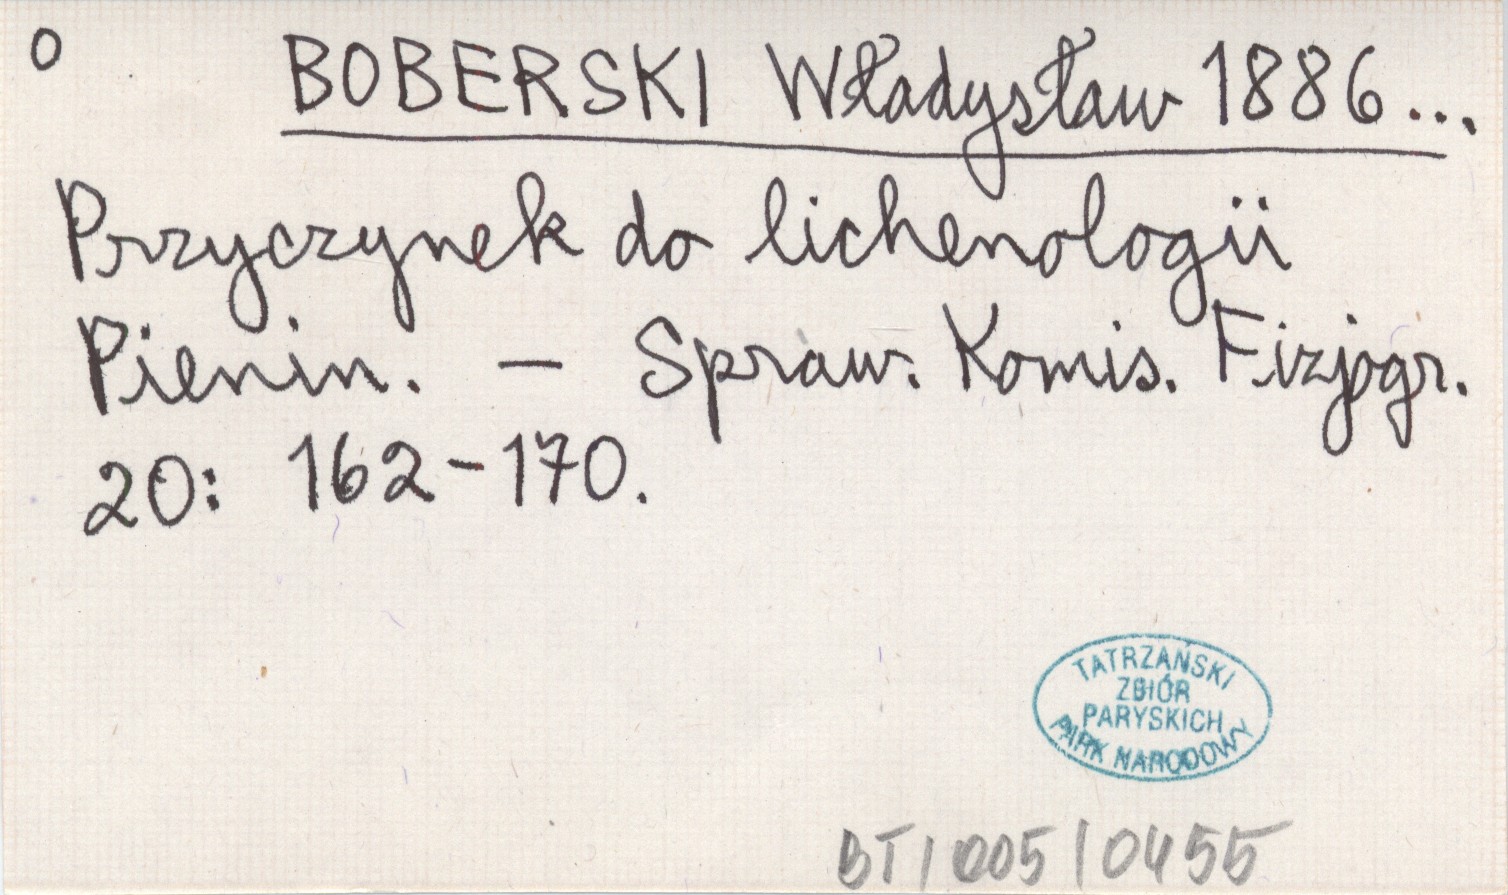 O BOBERSKI Władysław 1886...
Przyczynek do lichenologii
Pienin. – Spraw. Komis. Fizjogr.
20: 162-170.
TATRZAŃSKI
ZBIÓR
PARYSKICH
PARK NARODOWY
BT/005/0455